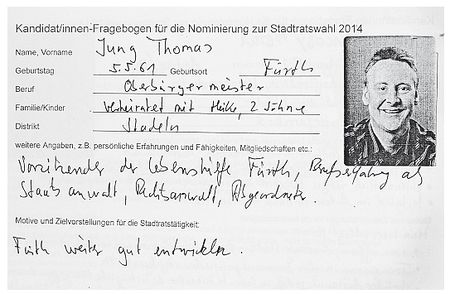 Kandidat/innen-Fragebogen für die Nominierung zur Stadtratswahl 2014
Name, Vorname Jung Thomas
Geburtstag 5.5.61 Geburtsort Fürth
Beruf Oberbürgermeister
Familie/Kinder verheiratet mit Heike, 2 Söhne
Distrikt Stadeln
weitere Angaben, z.B. persönliche Erfahrungen und Fähigkeiten, Mitgliedschaften etc.:
Vorsitzender der Lebenshilfe Fürth, Berufserfahrung als
Staatsanwalt, Rechtsanwalt, Abgeordneter.
Motive und Zielvorstellungen für die Stadtratstätigkeit:
Fürth weiter gut entwickeln.